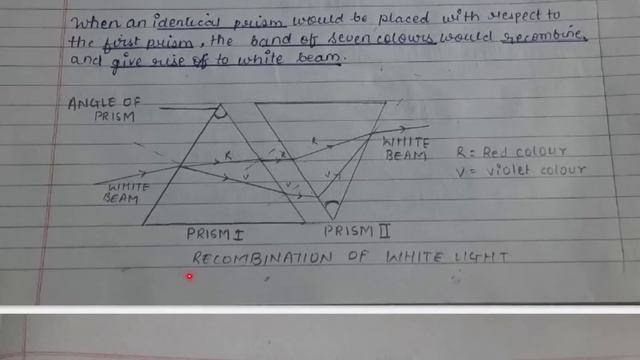 When an identical prism would be placed with respect to
the first prism, the band of seven colours would recombine
and give rise of to white beam.
ANGLE OF
PRISM
R
R
R
WHITE
BEAM
R = Red colour
V = violet colour
V
V
V
WHITE
BEAM
PRISM I
PRISM II
RECOMBINATION OF WHITE LIGHT